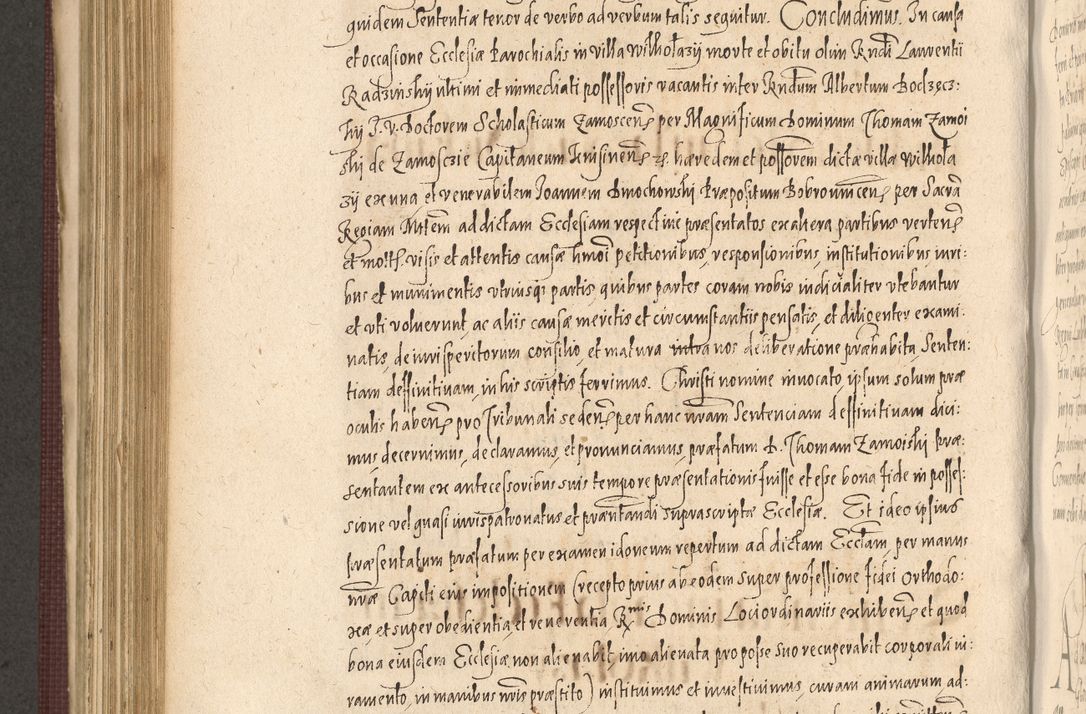 quidem Sententiæ tenor de verbo ad verbum talis sequitur. Concludimus. In causa
et occasione Ecclesiæ Parochialis in villa Wilhołazÿ morte et obitu olim Rndi Laurentii
Radzinshÿ ultimi et immediati possessoris vacantis inter Rndum Albertum Bodzecz:
hÿ J. V. Doctorem Scholasticum Zamoscen per Magnificum Dominum Thomam Zamoi
shÿ de Zamosczie Capitaneum Knisinen etc. hæredem et possorem dictæ villæ Wilhoła
zÿ ex una et venerabilem Joannem Dmochowshÿ Præpositum Bobrownicen per Sacrã
Regiam Mtem ad dictam Ecclesiam respective præsentatos ex altera partibus verten
et moltt. visis et attentis causæ hmoi petitionibus, responsionibus, institutionibus iuri:
bus et munimentis utriusq; partis, quibus partes coram nobis iudicialiter utebantur
et uti voluerunt, ac aliis causæ meritis et circumstantiis pensatis, et diligenter exami:
natis, de iurisperitorum consilio, et matura intra nos deliberatione præhabita, Senten:
tiam deffinitivam, in his scriptis ferrimus. Christi nomine invocato, ipsum solum præ
oculis haben pro Tribunali seden per hanc nram Sentenciam deffinitivam dici:
mus, decernimus, declaramus, et pronunciamus, præfatum D. Thomam Zamoishÿ Præ:
sentantem ex antecessoribus suis tempore præsentationis fuisse et esse bona fide in posses:
sione vel quasi iurispatronatus et præntandi suprascriptæ Ecclesiæ. Et ideo ipsius
præsentatum præfatum per examen idoneum repertum ad dictam Ecclam, per manus
nræ Capiti eius impositionem (recepto prius ab eodem super professione fidei Orthodo:
xæ et super obedientia, et reverentia Rmis Dominis Lociordinariis exhiben et quod
bona eiusdem Ecclesiæ non alienabit, imo alienata pro posse suo recuperabit corporali iu:
ramento, in manibus nris præstito) instituimus et investivimus, curam animarum ad: